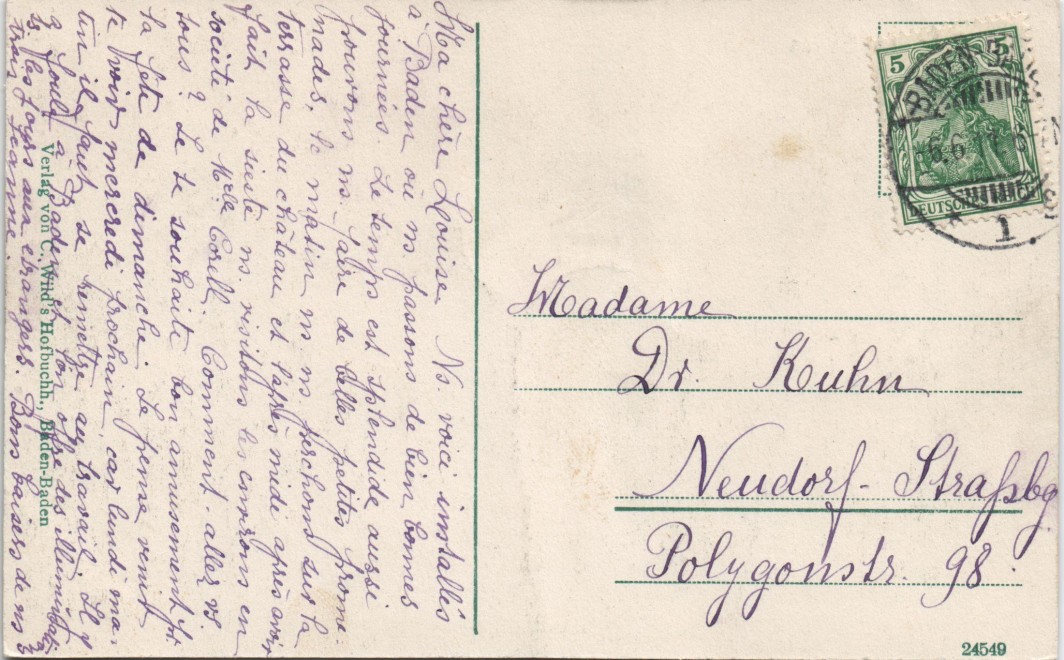 Ma chère Louise Ns voici installés
à Baden où ns. passons de bien bonnes
journées. Le temps est splendide aussi
pouvons ns. faire de belles petites prome-
nades, le matin ns ns perchons sur la
terrasse du château et l'après midi après avoir
fait la sieste ns. visitons les environs en
société de Melle Corell. Comment allez vs.
tous? Je te souhaite bon amusement pr.
la fête de dimanche. Je pense venir
te voir mercredi prochain, car lundi ma-
tin il faut se remettre au travail. Il y
a foule à Baden et ton offre des illuminations
ts. les jours aux étrangers. Bons baisers de ns 3
Jeanne
Verlag von C. Wild's Hofbuchh., Baden-Baden
5 5
DEUTSCHES REICH
BADEN-BADEN
6.6
1
Madame
Dr. Kuhn
Neudorf-Straßbg
Polygonstr. 98.
24549